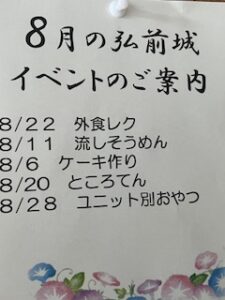 8月の弘前城
イベントのご案内
8/22　外食レク
8/11　流しそうめん
8/6　ケーキ作り
8/20　ところてん
8/28　ユニット別おやつ